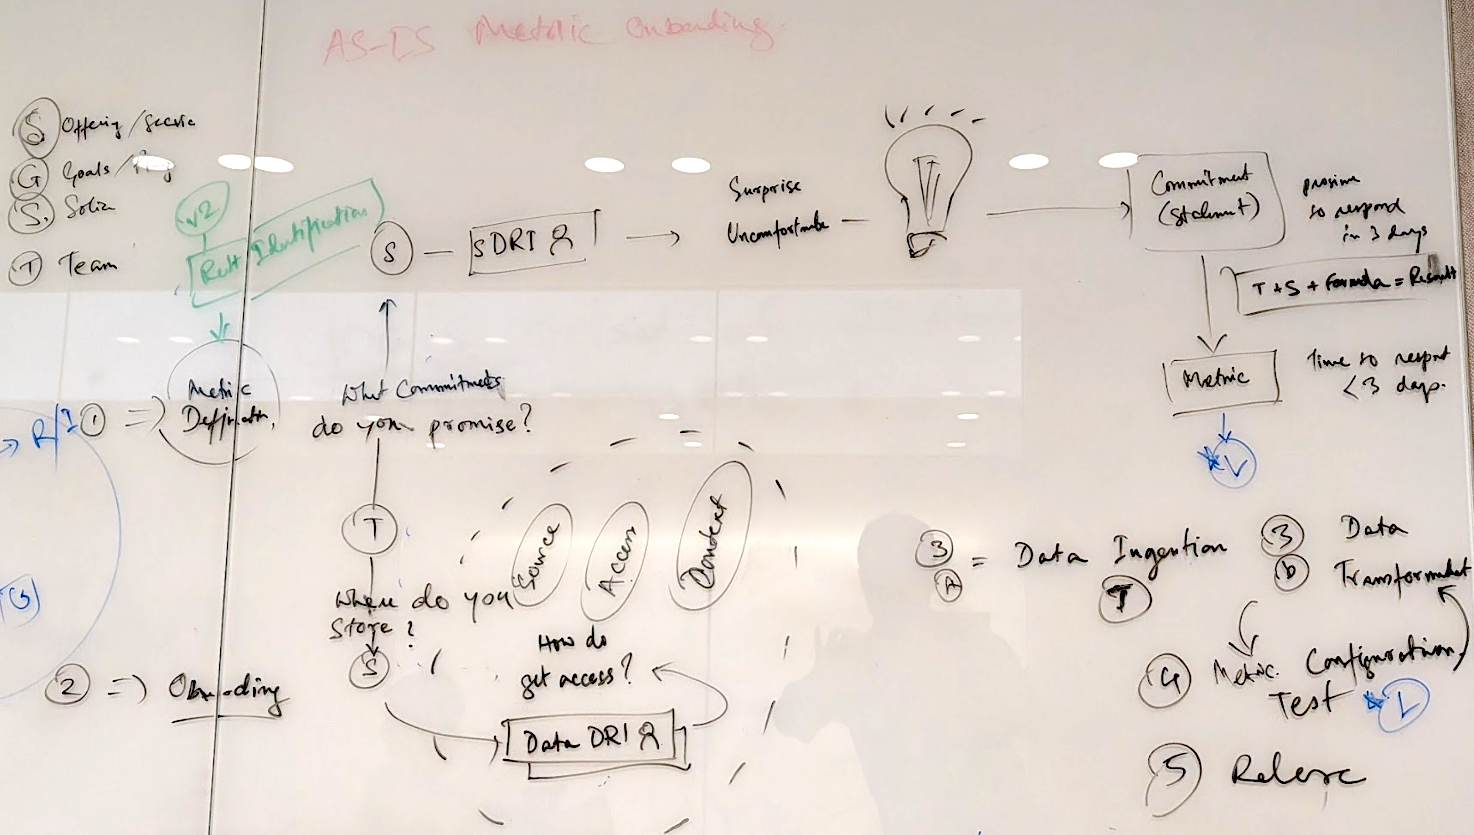 AS-IS Metric Onboarding
S Offering / Service
G Goals /
S.
T Team
v2
Identification
S — SDRI
Surprise
Uncomfortable —
Commitment
(Statement)
promise
to respond
in 3 days
T + S + Formula = Result
Metric
Time to respond
< 3 days.
L
What Commitments
do you promise?
R/I
1 => Metric
Definition.
T
Where do you
Store?
S
Source
Access
Content
How do
get access?
Data DRI
G
2 => Onboarding
3 A = Data Ingention
T
3 b Data
Transformation
4 Metric Configuration
Test L
5 Release